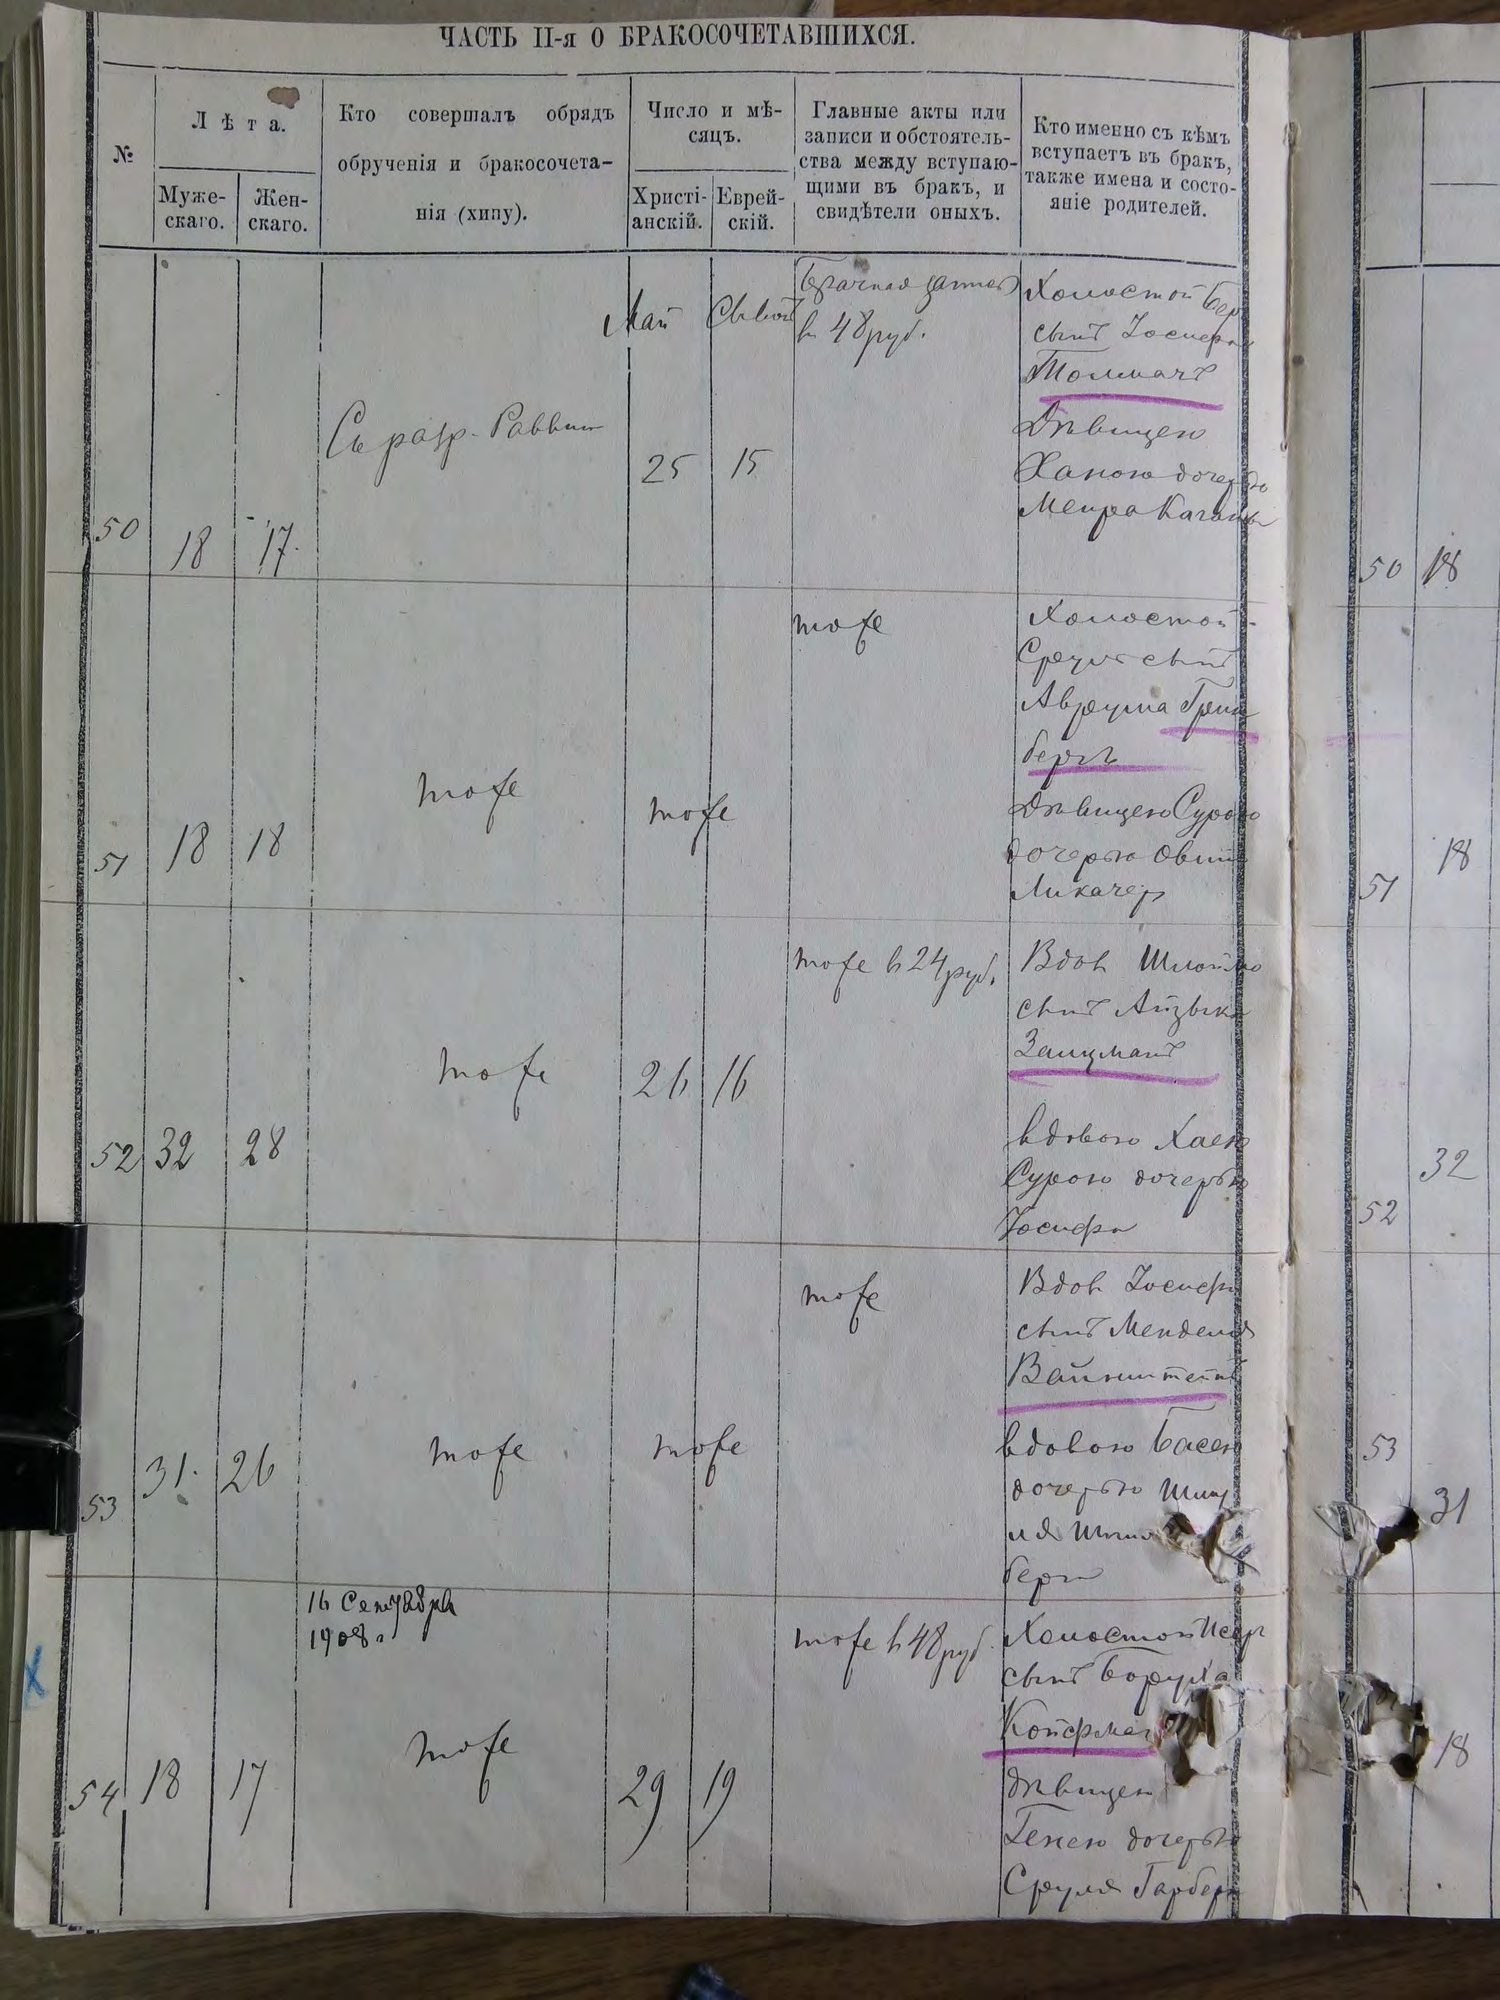 ЧАСТЬ II-я О БРАКОСОЧЕТАВШИХСЯ.
№
Лѣта.
Муже-
скаго.
Жен-
скаго.
Кто совершалъ обрядъ
обрученія и бракосочета-
нія (хипу).
Число и мѣ-
сяцъ.
Христі-
анскій.
Еврей-
скій.
Главные акты или
записи и обстоятель-
ства между вступаю-
щими въ бракъ, и
свидѣтели оныхъ.
Кто именно съ кѣмъ
вступаетъ въ бракъ,
также имена и состо-
яніе родителей.
50
18
17.
Съ разр. Раввин
Май
25
15
Брачная запись
в 48 руб.
Холостой Бер
сынъ Іосифа
Толмачъ
Дѣвицею
Ханою дочерью
Меира Каганъ
50 18
51
18
18
тоже
тоже
тоже
Холостой
Сруль сынъ
Авреума Грин
бергъ
Дѣвицею Сурою
дочерью
51
18
52
32
28
тоже
26
16
тоже в 24 руб.
Вдов Шлойма
сынъ Айзыка
Зальцманъ
вдовою Хаею
Сурою дочерью
Іосифа
32
52
53
31.
26
тоже
тоже
тоже
Вдов Іосиф
сынъ Менделя
Вайнштейнъ
вдовою Басею
дочерью
берг
53
31
16 Сентября
1908 г
54
18
17
тоже
29
19
тоже в 48 руб.
Холостой
сынъ Боруха
Койфман
дѣвицею
Генею дочерью
Сруля Гарбер
18